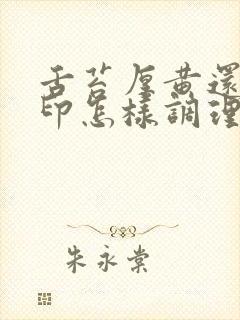 舌苔厚黃還
印怎樣調理
朱永棠